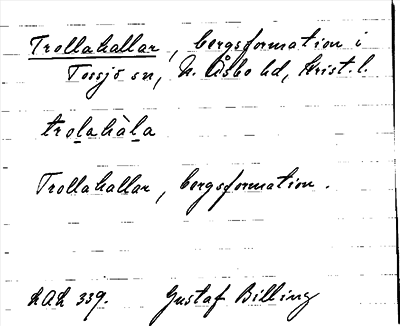 Trollahallar, bergsformation i
Torsjö sn, N. Åsbo hd, Krist. l.
trolahàla
Trollahallar, bergsformation.
LAL 339. Gustaf Billing